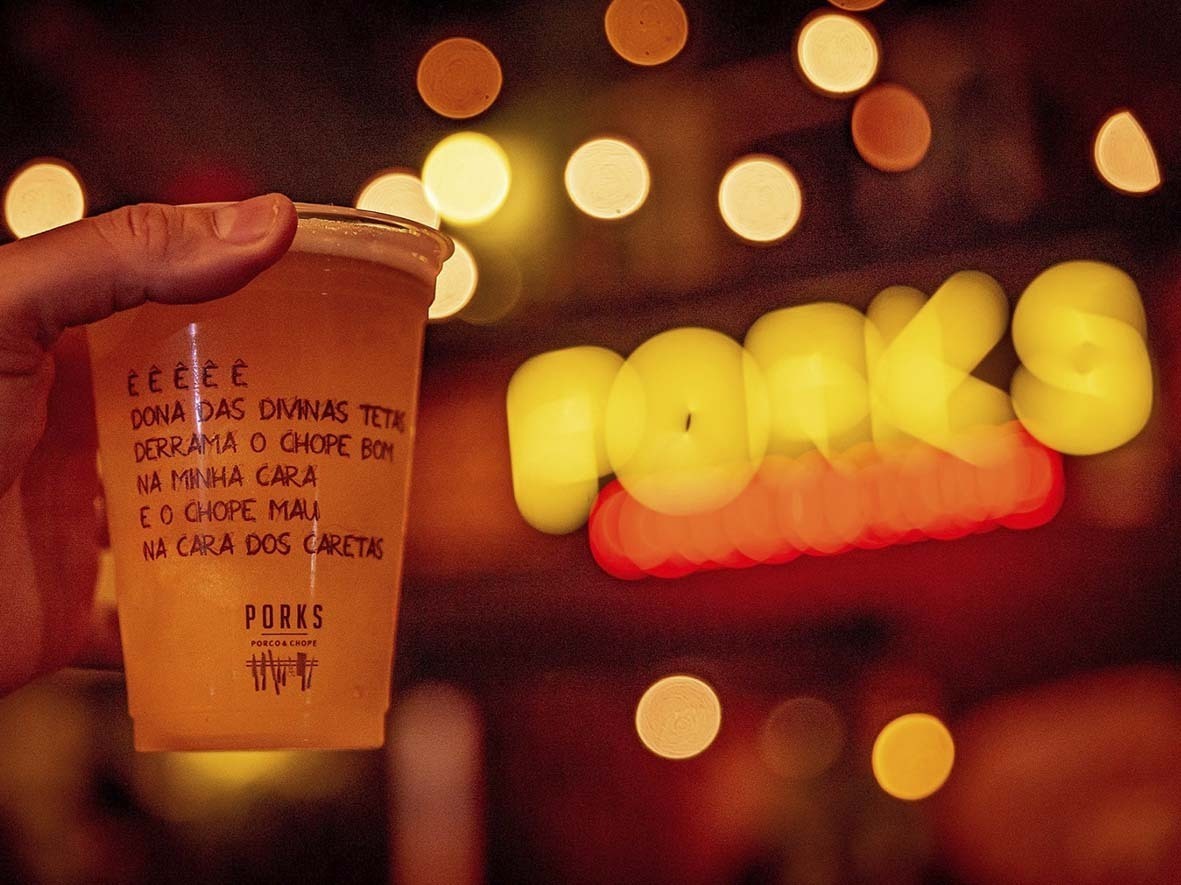 Ê Ê Ê Ê Ê
DONA DAS DIVINAS TETAS
DERRAMA O CHOPE BOM
NA MINHA CARA
E O CHOPE MAU
NA CARA DOS CARETAS
PORKS
PORCO & CHOPE
PORKS